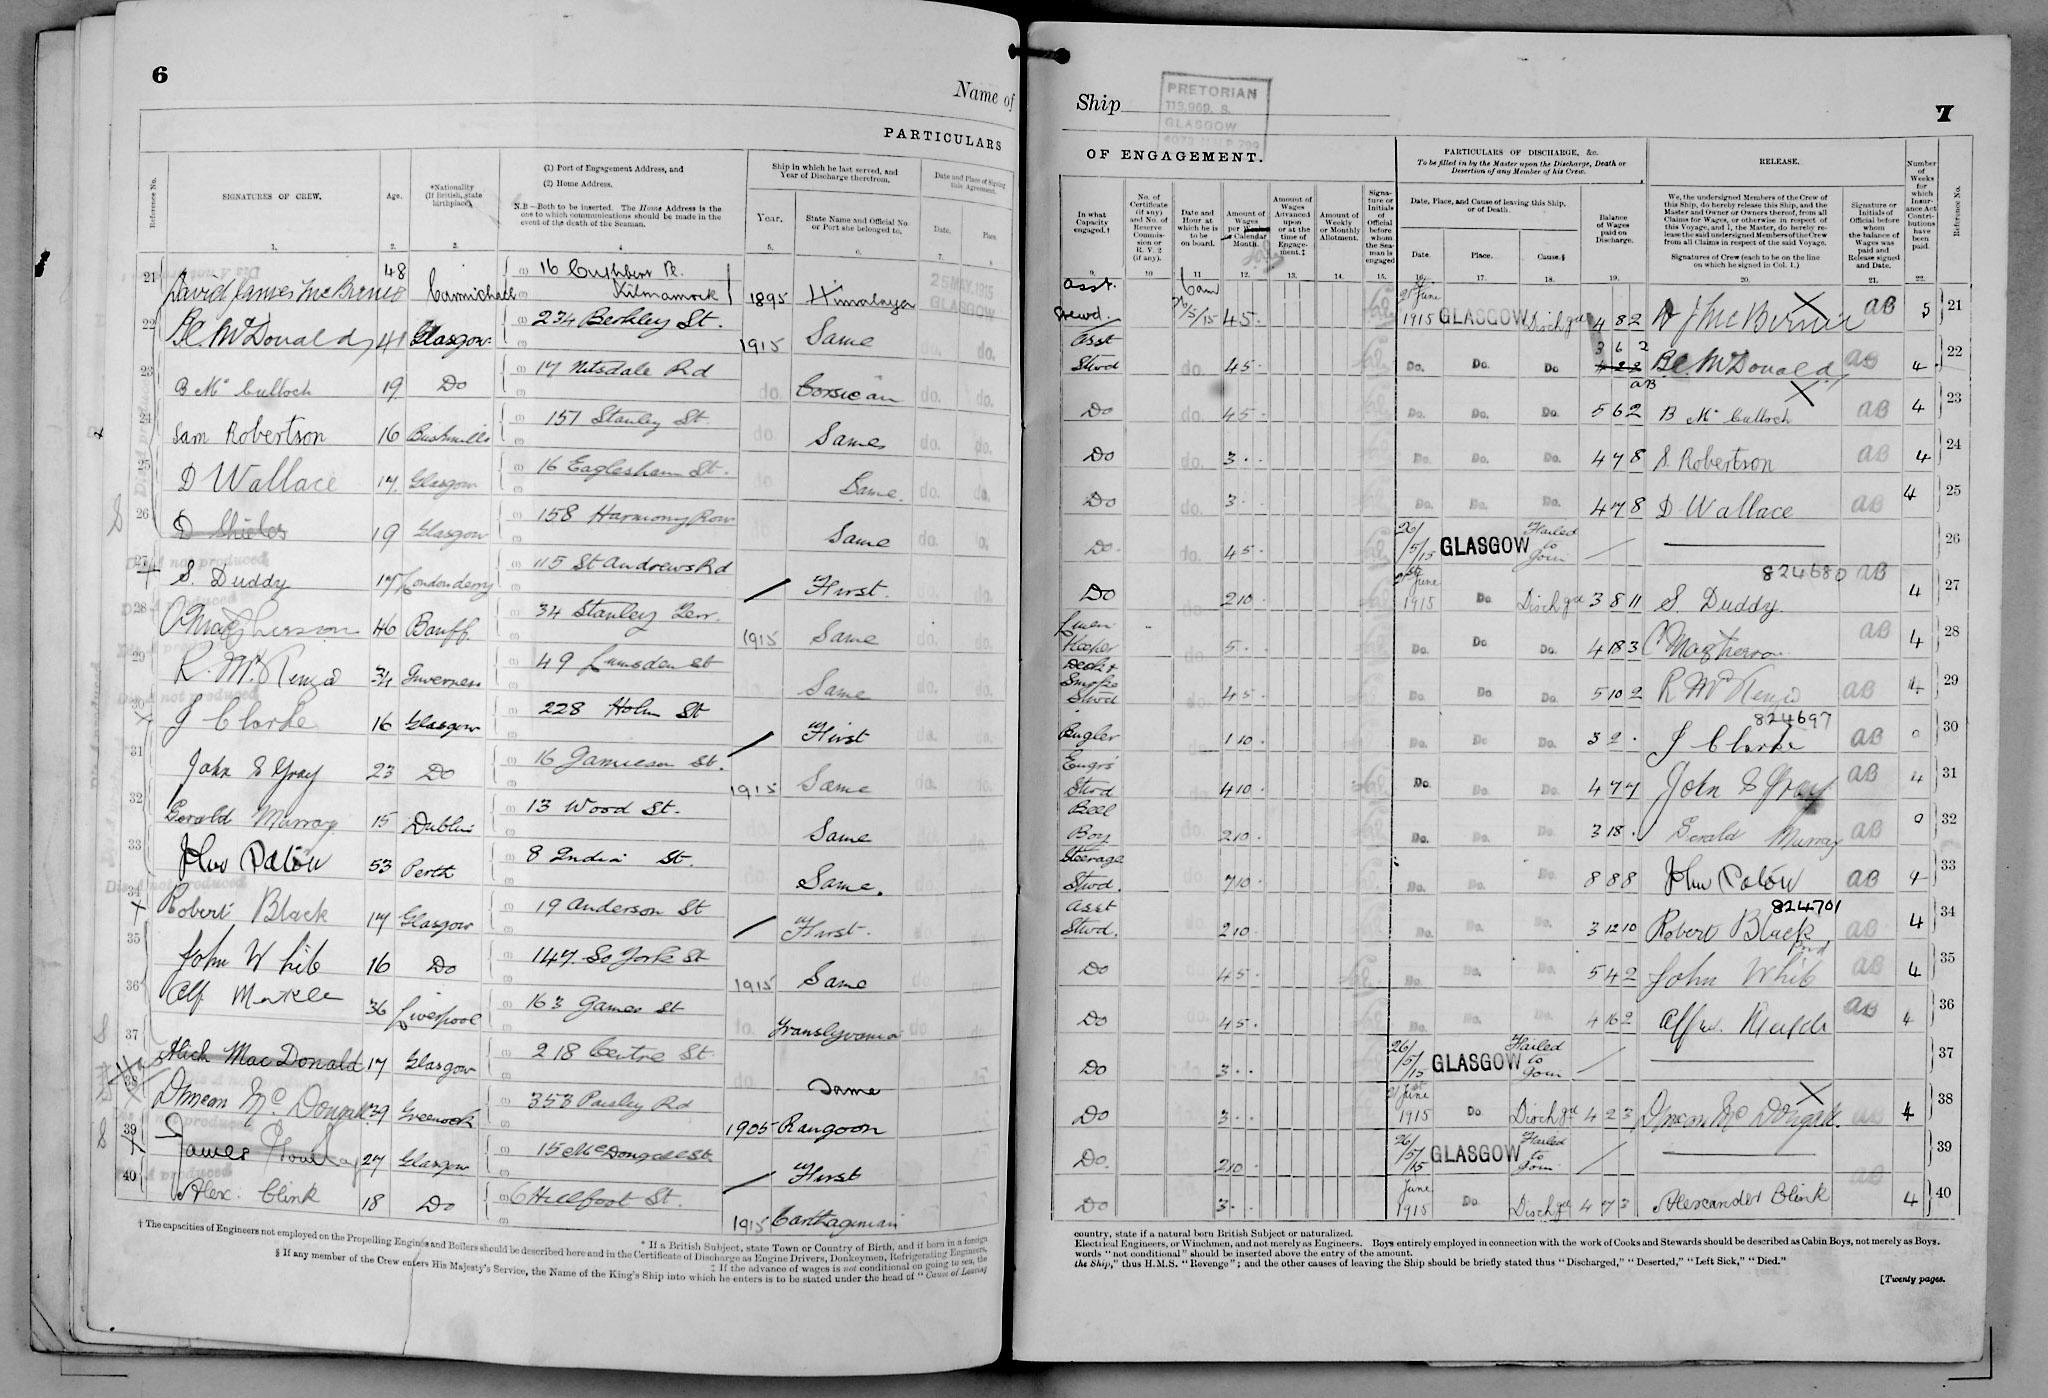 6
Name of
PARTICULARS
Reference No.
SIGNATURES OF CREW.
Age.
*Nationality
(If British, state
birthplace).
(1) Port of Engagement Address, and
(2) Home Address.
N.B.—Both to be inserted. The Home Address is the
one to which communications should be made in the
event of the death of the Seaman.
Ship in which he last served, and
Year of Discharge therefrom.
Year.
State Name and Official No.
or Port she belonged to.
Date and Place of Signing
this Agreement.
Date.
Place.
1. 2. 3. 4 5. 6. 7. 8
21 David James McBirnie 48 Carmichael 16 Cuthbert Pl. Kilmarnock 1895 Himalaya 25 MAY. 1915 GLASGOW
22 Bl. McDonald 41 Glasgow 234 Berkley St. 1915 Same do. do.
23 B McCulloch 19 Do 17 Nitsdale Rd do. Corsican do. do.
24 Sam Robertson 16 Bushmills 157 Stanley St. do. Same do. do.
25 D Wallace 17. Glasgow 16 Eaglesham St. do Same. do. do.
26 D Shields 19 Glasgow 158 Harmony Row Same do. do.
27 S. Duddy 17 Londonderry 115 St Andrews Rd First. do. do.
28 46 Banff 34 Stanley Terr. 1915 Same do. do.
29 R. McKenzie 34 Inverness 49 Lumsden St Same do. do.
30 J Clarke 16 Glasgow 228 Holm St First do. do.
31 John S Gray 23 Do 16 Jamieson St. 1915 Same do. do.
32 Gerald Murray 15 Dublin 13 Wood St. do. Same do. do.
33 John Paton 53 Perth 8 India St. Same. do.
34 Robert Black 17 Glasgow 19 Anderson St First. do.
35 John Whib 16 Do 147. So York St 1915 Same do.
36 Alf 36 Liverpool 163 James St do. Translyvania do
37 Mich MacDonald 17 Glasgow 218 Centre St. do Same
38 Duncan McDougall 39 Greenock 353 Paisley Rd 1905 Rangoon
39 James 27 Glasgow 15 McDougall St. First
40 Alex. Clink 18 Do 6 Hillfoot St. 1915 Carthaginian
† The capacities of Engineers not employed on the Propelling Engines and Boilers should be described here and in the Certificate of Discharge as Engine Drivers, Donkeymen, Refrigerating Engineers,
* If a British Subject, state Town or Country of Birth, and if born in a foreign
‡ If the advance of wages is not conditional on going to sea, the
§ If any member of the Crew enters His Majesty's Service, the Name of the King's Ship into which he enters is to be stated under the head of "Cause of Leaving
Ship
PRETORIAN
113,969. S.
GLASGOW
7
OF ENGAGEMENT.
In what
Capacity
engaged.†
No. of
Certificate
(if any)
and No. of
Reserve
Commis-
sion or
R. V. 2
(if any).
Date and
Hour at
which he is
to be
on board.
Amount of
Wages
per Week or
Calendar
Month.
Amount of
Wages
Advanced
upon
or at the
time of
Engage-
ment.‡
Amount of
Weekly
or Monthly
Allotment.
Signa-
ture or
Initials
of
Official
before
whom
the Sea-
man is
engaged
PARTICULARS OF DISCHARGE, &c.
To be filled in by the Master upon the Discharge, Death or
Desertion of any Member of his Crew.
Date, Place, and Cause of leaving this Ship,
or of Death.
Date.
Place.
Cause.§
Balance
of Wages
paid on
Discharge.
RELEASE.
We, the undersigned Members of the Crew of
this Ship, do hereby release this Ship, and the
Master and Owner or Owners thereof, from all
Claims for Wages, or otherwise in respect of
this Voyage, and I, the Master, do hereby re-
lease the said undersigned Members of the Crew
from all Claims in respect of the said Voyage.
Signatures of Crew (each to be on the line
on which he signed in Col. 1.)
Signature or
Initials of
Official before
whom
the balance of
Wages was
paid and
Release signed
and Date.
Number
of
Weeks
for
which
Insur-
ance Act
Contri-
butions
have
been
paid.
Reference No.
9. 10 11 12. 13. 14. 15. 16. 17. 18. 19. 20. 21. 22.
Asst. Stewd. 6am 26/5/15 4 5 . 21st June 1915 GLASGOW Dischgd 4 8 2 D J McBirnie AB 5 21
Asst Stwd 4 5 . Do. Do. Do 3 6 2 Bl. McDonald AB 4 22
Do do. 4 5 . Do. Do. Do. 5 6 2 B McCulloch AB 4 23
Do do. 3 . . Do. Do. Do. 4 7 8 S. Robertson AB 4 24
Do do. 3 . . Do. Do. Do. 4 7 8 D Wallace AB 4 25
Do. do. 4 5 . 26/5/15 GLASGOW Failed to Join 26
Do 2 10 . 21st June 1915 Do Dischgd 3 8 11 824680 S. Duddy AB 4 27
Linen Keeper 5 . Do. Do Do. 4 18 3 AB 4 28
Deck & Smoke Stwd 4 5 . Do. Do. Do. 5 10 2 R McKenzie AB 4 29
Bugler 1 10 . Do. Do Do. 3 2 . 824697 J Clarke AB 0 30
Engrs Stwd 4 10 . Do. Do. Do. 4 7 7 John S Gray AB 4 31
Bell Boy do. 2 10 . Do. Do. Do. 3 18 . Gerald Murray AB 0 32
Steerage Stwd. 7 10 . Do. Do. Do. 8 8 8 John Paton AB 4 33
Asst Stwd. 2 10 Do. Do. Do. 3 12 10 824701 Robert Black AB 4 34
Do 4 5 . Do. Do. Do. 5 4 2 John Whib AB 4 35
Do 4 5 . Do. Do. Do. 4 16 2 AB 4 36
Do 3 . . 26/5/15 GLASGOW Failed to Join 37
Do 3 . . 21st June 1915 Do Dischgd 4 2 3 Duncan McDougall. AB 4 38
Do. 2 10 . 26/5/15 GLASGOW Failed to Join 39
Do 3 . . June 1915 Do. Dischgd 4 7 3 Alexander Clink AB 4 40
country, state if a natural born British Subject or naturalized.
Electrical Engineers, or Winchmen, and not merely as Engineers. Boys entirely employed in connection with the work of Cooks and Stewards should be described as Cabin Boys, not merely as Boys.
words "not conditional" should be inserted above the entry of the amount.
the Ship," thus H.M.S. "Revenge"; and the other causes of leaving the Ship should be briefly stated thus "Discharged," "Deserted," "Left Sick," "Died."
[Twenty pages.